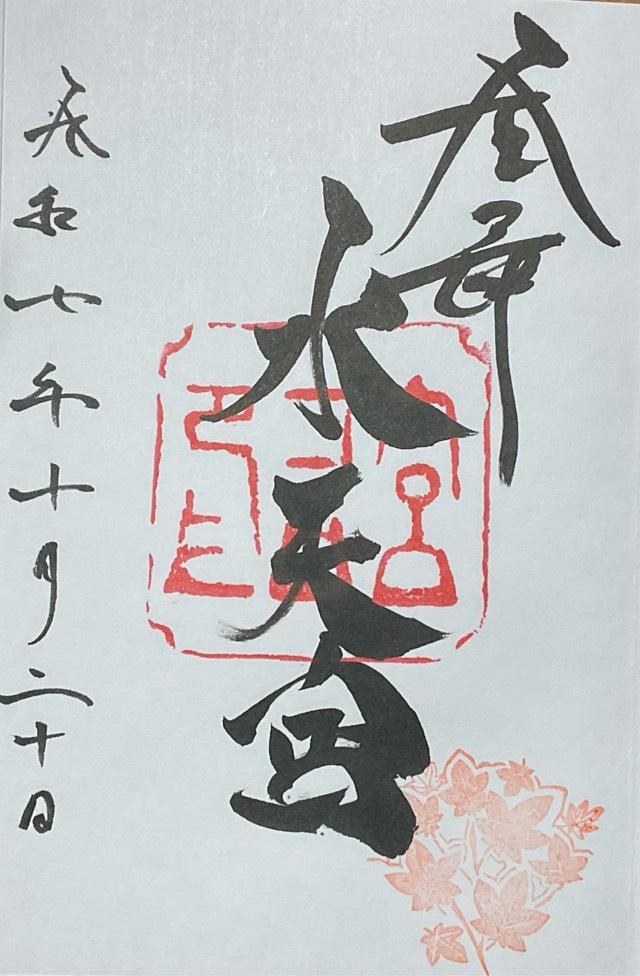 奉拝
水天宮
令和七年十月二十日